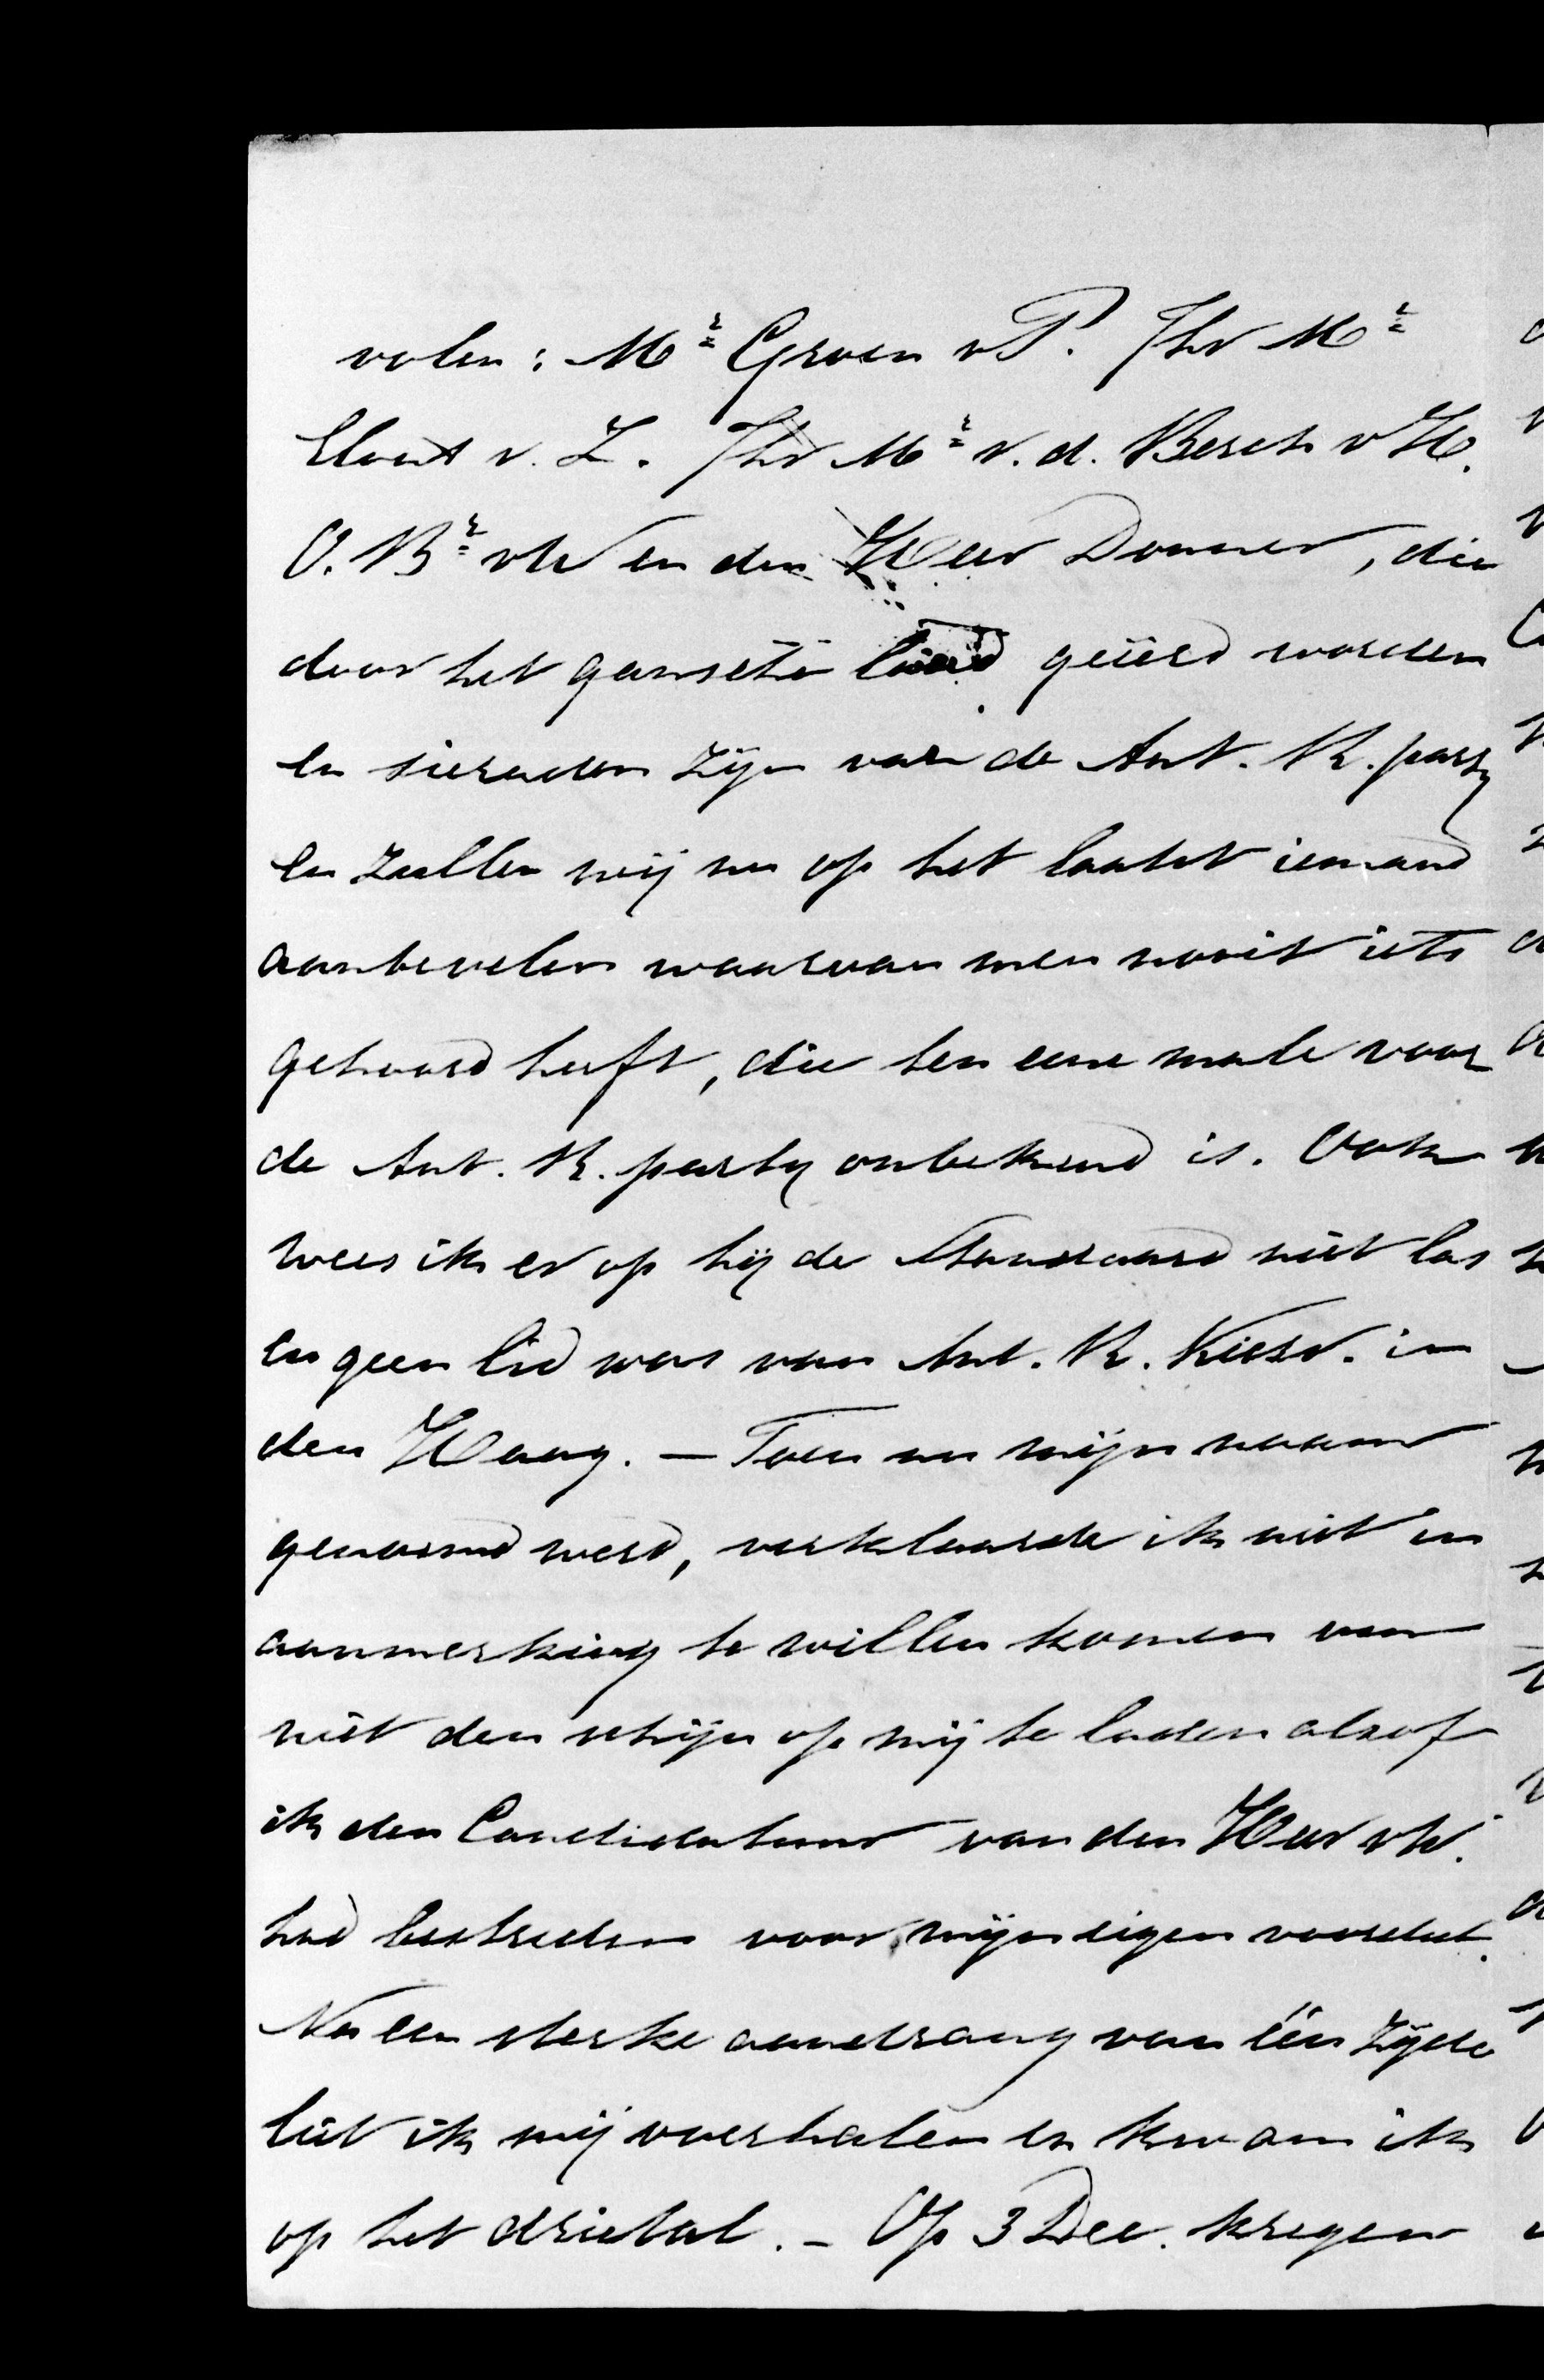 volen: Mr Groen v P. Jhr Mr
Elout v. Z. Jhr Mr v.d. Berch v H.
O. Br vW en den Heer Donner, die
door het gansche land geëerd worden
en sieraden zijn van de Ant. R. party
en zullen wij nu op het laatst iemand
aanbevelen waarvan men nooit iets
gehoord heeft, die ten eene male voor
de Ant. R. party onbekend is. Ook
wees ik er op hij de Standaard niet las
en geen lid was van Ant. R. Kiesv. in
den Haag. – Toen nu mijn naam
genoemd werd, verklaarde ik niet in
aanmerking te willen komen om
niet den schijn op mij te laden alsof
ik den Candidatuur van den Heer vW.
had bestreden voor mijn eigen voordeel.
Na een sterke aandrang van één zijde
liet ik mij overhalen en kwam ik
op het drietal. – Op 3 Dec. kregen